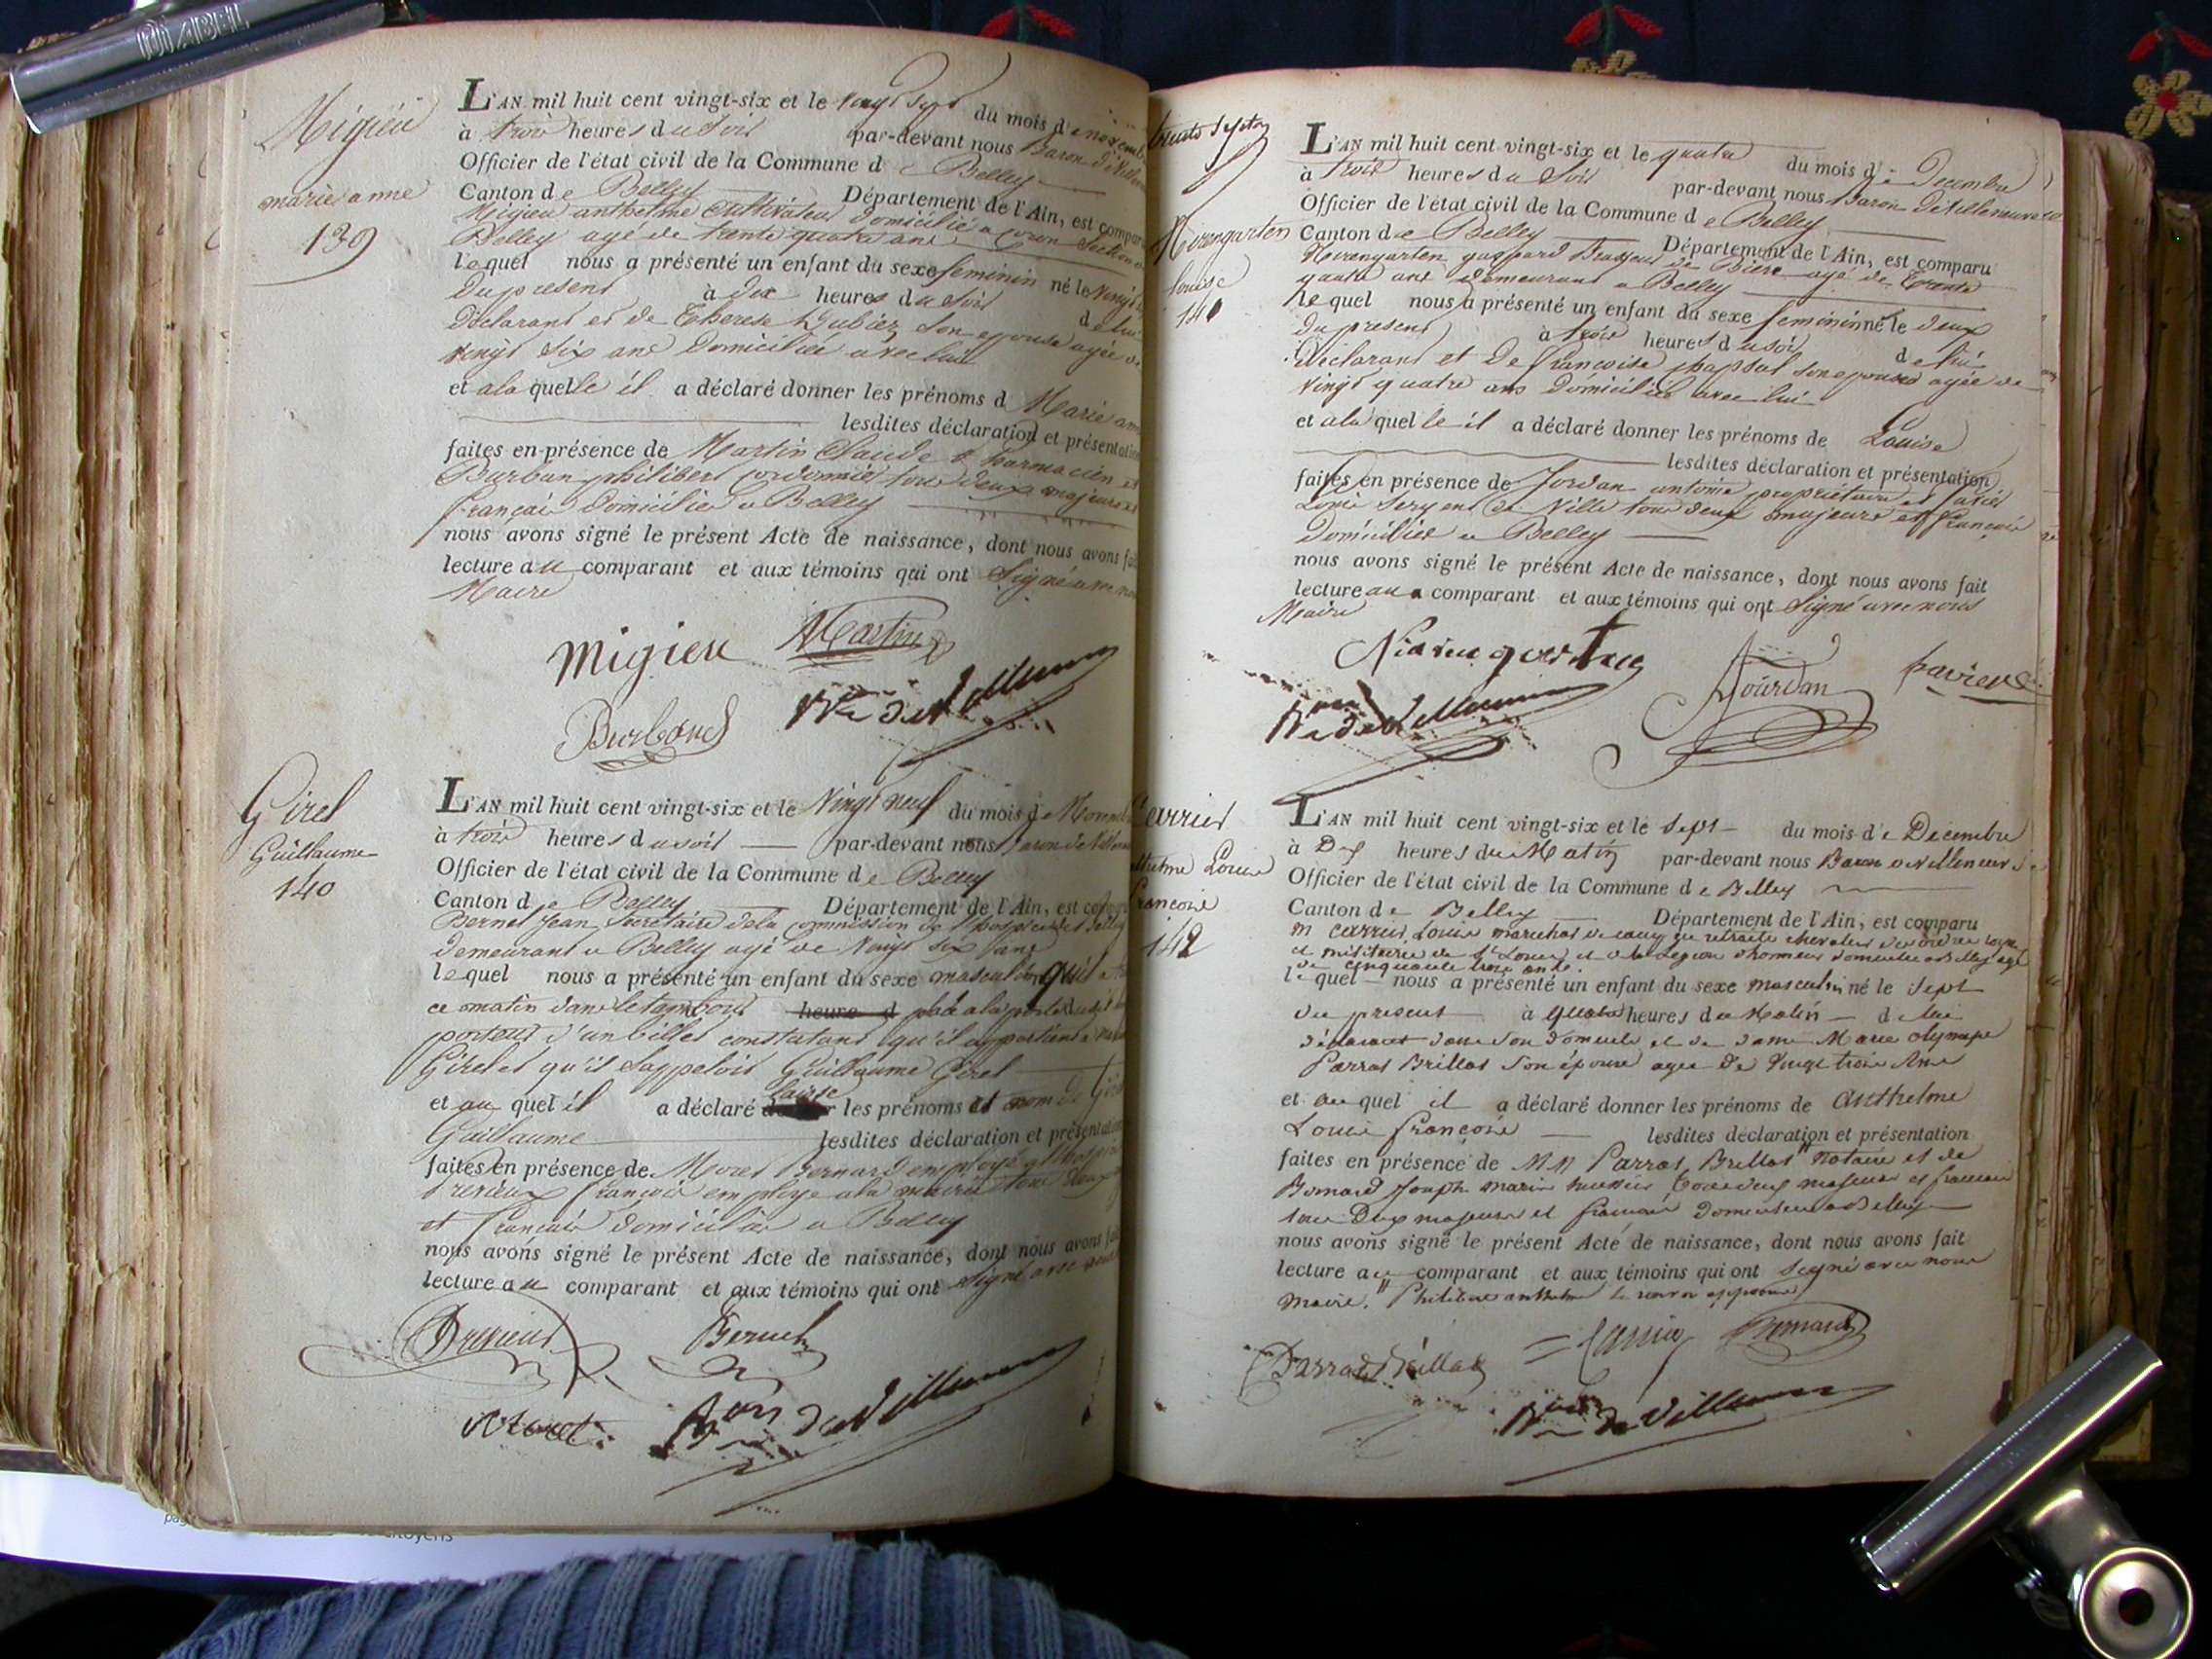 DIABEL
Migieu
marie anne
139
L'AN mil huit cent vingt-six et le vingt sept du mois de novemb
à trois heures du soir par-devant nous Baron de Villen
Officier de l'état civil de la Commune de Belley
Canton de Belley Département de l'Ain, est compar
Migieu anthelme Cultivateur domicilié a section
Belley agé de trente quatre ans
lequel nous a présenté un enfant du sexe feminin né le vingt
du present à dix heures du soir de lui
Déclarant et de Therese son epouse agée de
vingt six ans Domiciliée avec lui
et a la quelle il a déclaré donner les prénoms d Marie ann
lesdites déclaration et présentation
faites en présence de Martin Claude Pharmacien et
Burban philibert cordonnier tous deux majeurs et
français Domiciliés a Belley
nous avons signé le présent Acte de naissance, dont nous avons fai
lecture au comparant et aux témoins qui ont Signé
Maire
Migieu Martin
Burband Bon de Villeneuve
Girel
Guillaume
140
L'AN mil huit cent vingt-six et le Vingt neuf du mois de Novem
à trois heures du soir par-devant nous Baron de Villen
Officier de l'état civil de la Commune de Belley
Canton de Belley Département de l'Ain, est comp
Bernet Jean Secrétaire de la commission de l'hospice de Belley
demeurant a Belley agé de Vingt six ans
lequel nous a présenté un enfant du sexe masculin qu'il a
ce matin dans le tambour heure d placé a la porte
porteur d'un billet constatant qu'il appartient a
Girel et qu'il Sappeloit Guillaume Girel
et au quel il a déclaré laisse les prénoms et nom de Girel
Guillaume lesdites déclaration et présentation
faites en présence de Moret Bernard employé a l'hospice
Drevieux françois employe a la mairie tous deux
et français domiciliés a Belley
nous avons signé le présent Acte de naissance, dont nous avons fai
lecture au comparant et aux témoins qui ont signé avec nous
Drevieux
Moret Bon de Villeneuve
Nirengarten
louise
141
L'AN mil huit cent vingt-six et le quatre du mois de Decembre
à trois heures du Soir par-devant nous Baron de Villeneuve
Officier de l'état civil de la Commune de Belley
Canton de Belley Département de l'Ain, est comparu
Nirengarten gaspard Brasseur de Biere agé de Trente
quatre ans demeurant a Belley
lequel nous a présenté un enfant du sexe feminin né le deux
du present à trois heures du soir de lui
Déclarant et de françoise son epouse agée de
vingt quatre ans Domiciliée avec lui
et a la quelle il a déclaré donner les prénoms de Louise
lesdites déclaration et présentation
faites en présence de Jordan antoine propriétaire et favier
Louis Sergent de Ville tous deux majeurs et français
Domiciliés a Belley
nous avons signé le présent Acte de naissance, dont nous avons fait
lecture au comparant et aux témoins qui ont Signé avec nous
Maire
Jourdan favier
Bon de Villeneuve
Carrier
thelme Louis
francois
142
L'AN mil huit cent vingt-six et le Sept du mois de Decembre
à Dix heures du Matin par-devant nous Baron de Villeneuve
Officier de l'état civil de la Commune de Belley
Canton de Belley Département de l'Ain, est comparu
m carrier Louis marechal de camp en retraite chevalier des ordres royal
et militaire de St Louis et de la Legion d'honneur domicilié a Belley agé
de cinquante trois ans.
lequel nous a présenté un enfant du sexe masculin né le Sept
du present à quatre heures du Matin de lui
déclarant dans son domicile et de dame Marie olympe
Parrat Brillat Son épouse agée de Vingt trois Ans
et au quel il a déclaré donner les prénoms de Anthelme
Louis françois lesdites déclaration et présentation
faites en présence de MM Parrat Brillat " notaire et de
Bomard Joseph marin majeurs et francais
tous Deux majeurs et francais domiciliés a Belley
nous avons signé le présent Acte de naissance, dont nous avons fait
lecture au comparant et aux témoins qui ont signé avec nous
Maire. " Philibert anthelme le renvoi approuvé
Parrat Brillat Carrier Bomard
Bon de Villeneuve
citoyens